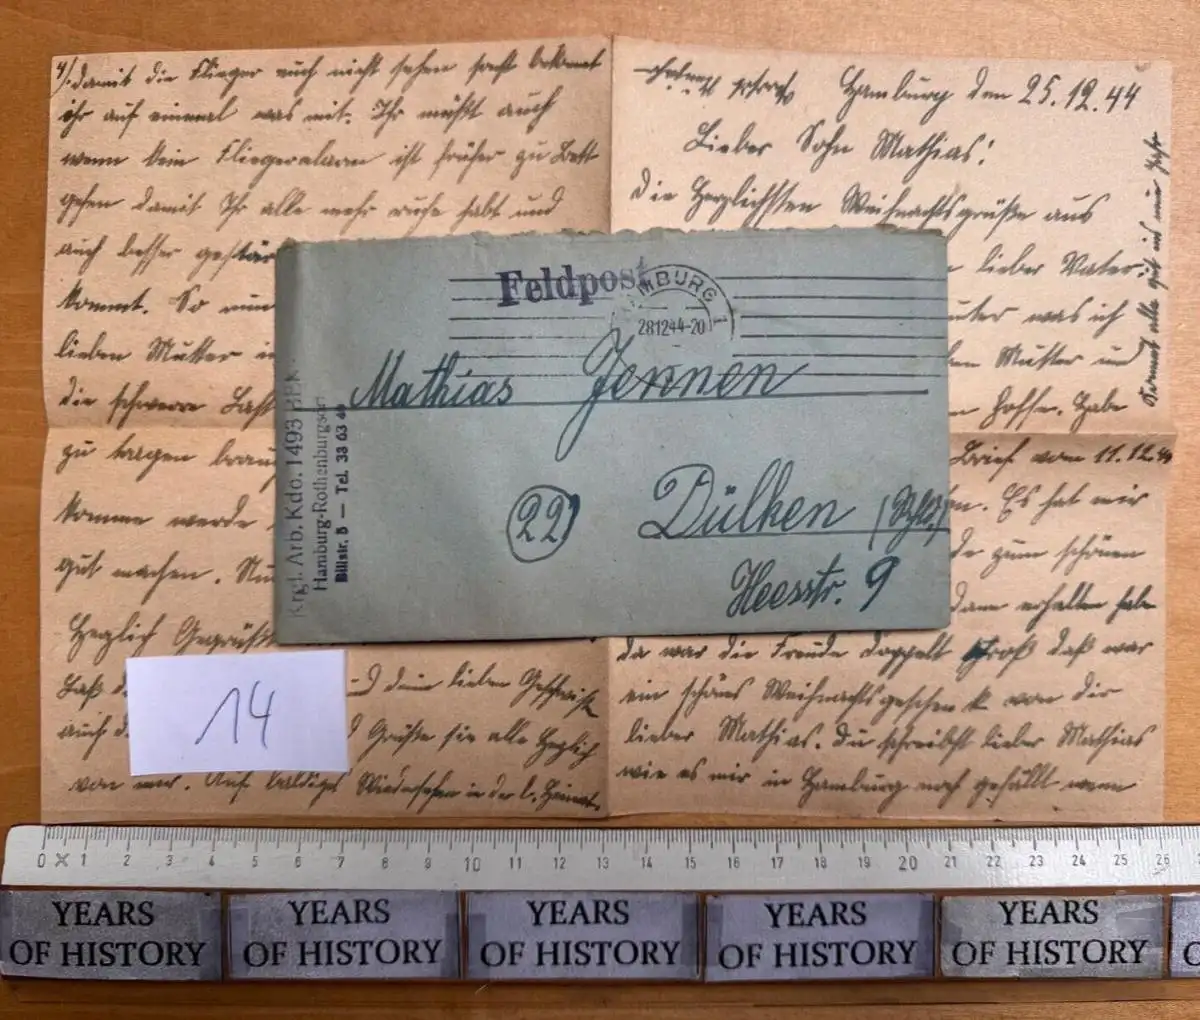 4/. damit die Flieger euch nicht sehen sonst bekommt
ihr auf einmal was mit. Ihr müßt auch
wenn kein Fliegeralarm ist früher zu Bett
gehen damit Ihr alle mehr ruhe habt und
auch besser
kommt. So nun
lieben Mutter
die schwere Last
zu tragen
komme werde
gut machen. Nun
Herzlich Gegrüßt
und dein lieben Geschwister
auch Grüße sie alle Herzlich
von mir. Auf baldiges Wiedersehen in der l. Heimat.
Hamburg den 25.12.44
Lieber Sohn Mathias!
Die Herzlichsten Weihnachtsgrüße aus
lieber Vater
was ich
Mutter und
hoffe. Habe
Brief vom 11.12.44
Es hat mir
zum schönen
dann erhalten habe
da war die Freude doppelt Groß daß war
ein schönes Weihnachtsgeschenk von dir
lieber Mathias. Du schreibst lieber Mathias
wie es mir in Hamburg noch gefällt wenn
Kommt alle gut ins neue Jahr
Feldpost
HAMBURG 1
28.12.44-20
Mathias Jennen
(22) Dülken (Rhld.)
Heesstr. 9
Krgf. Arb. Kdo. 1493
Hamburg-Rothenburgsort
Billstr. 5 — Tel. 33 63
14
0 1 2 3 4 5 6 7 8 9 10 11 12 13 14 15 16 17 18 19 20 21 22 23 24 25 26
YEARS OF HISTORY
YEARS OF HISTORY
YEARS OF HISTORY
YEARS OF HISTORY
YEARS OF HISTORY